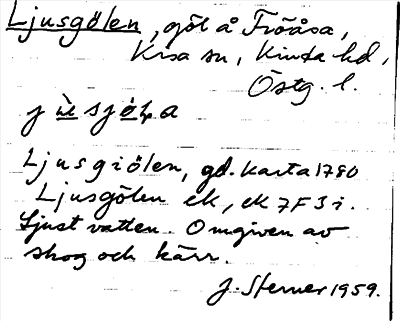 Ljusgölen, göl å Fröåsa,
Kisa sn, Kinda hd,
Östg. l.
Ljusgiölen, gd. karta 1780
Ljusgölen ek, ek 7F3i.
Ljust vatten. Omgiven av
skog och kärr.
J. Sterner 1959.